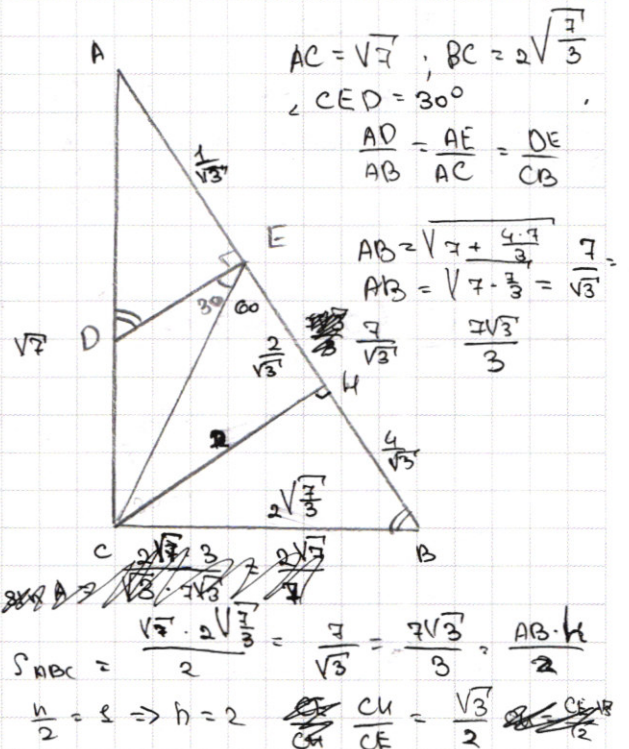 A
AC = √7 ; BC = 2√(7/3)
∠ CED = 30°
AD/AB = AE/AC = DE/CB
1/√3
E
AB = √(7 + 4·7/3)
AB = √(7·7/3) = 7/√3 =
7/√3 7√3/3
30 60
√7 D
2/√3
H
2
4/√3
2√(7/3)
C B
S ABC = (√7 · 2√(7/3))/2 = 7/√3 = 7√3/3 = AB·h/2
h/2 = 1 => h = 2 CH/CE = √3/2